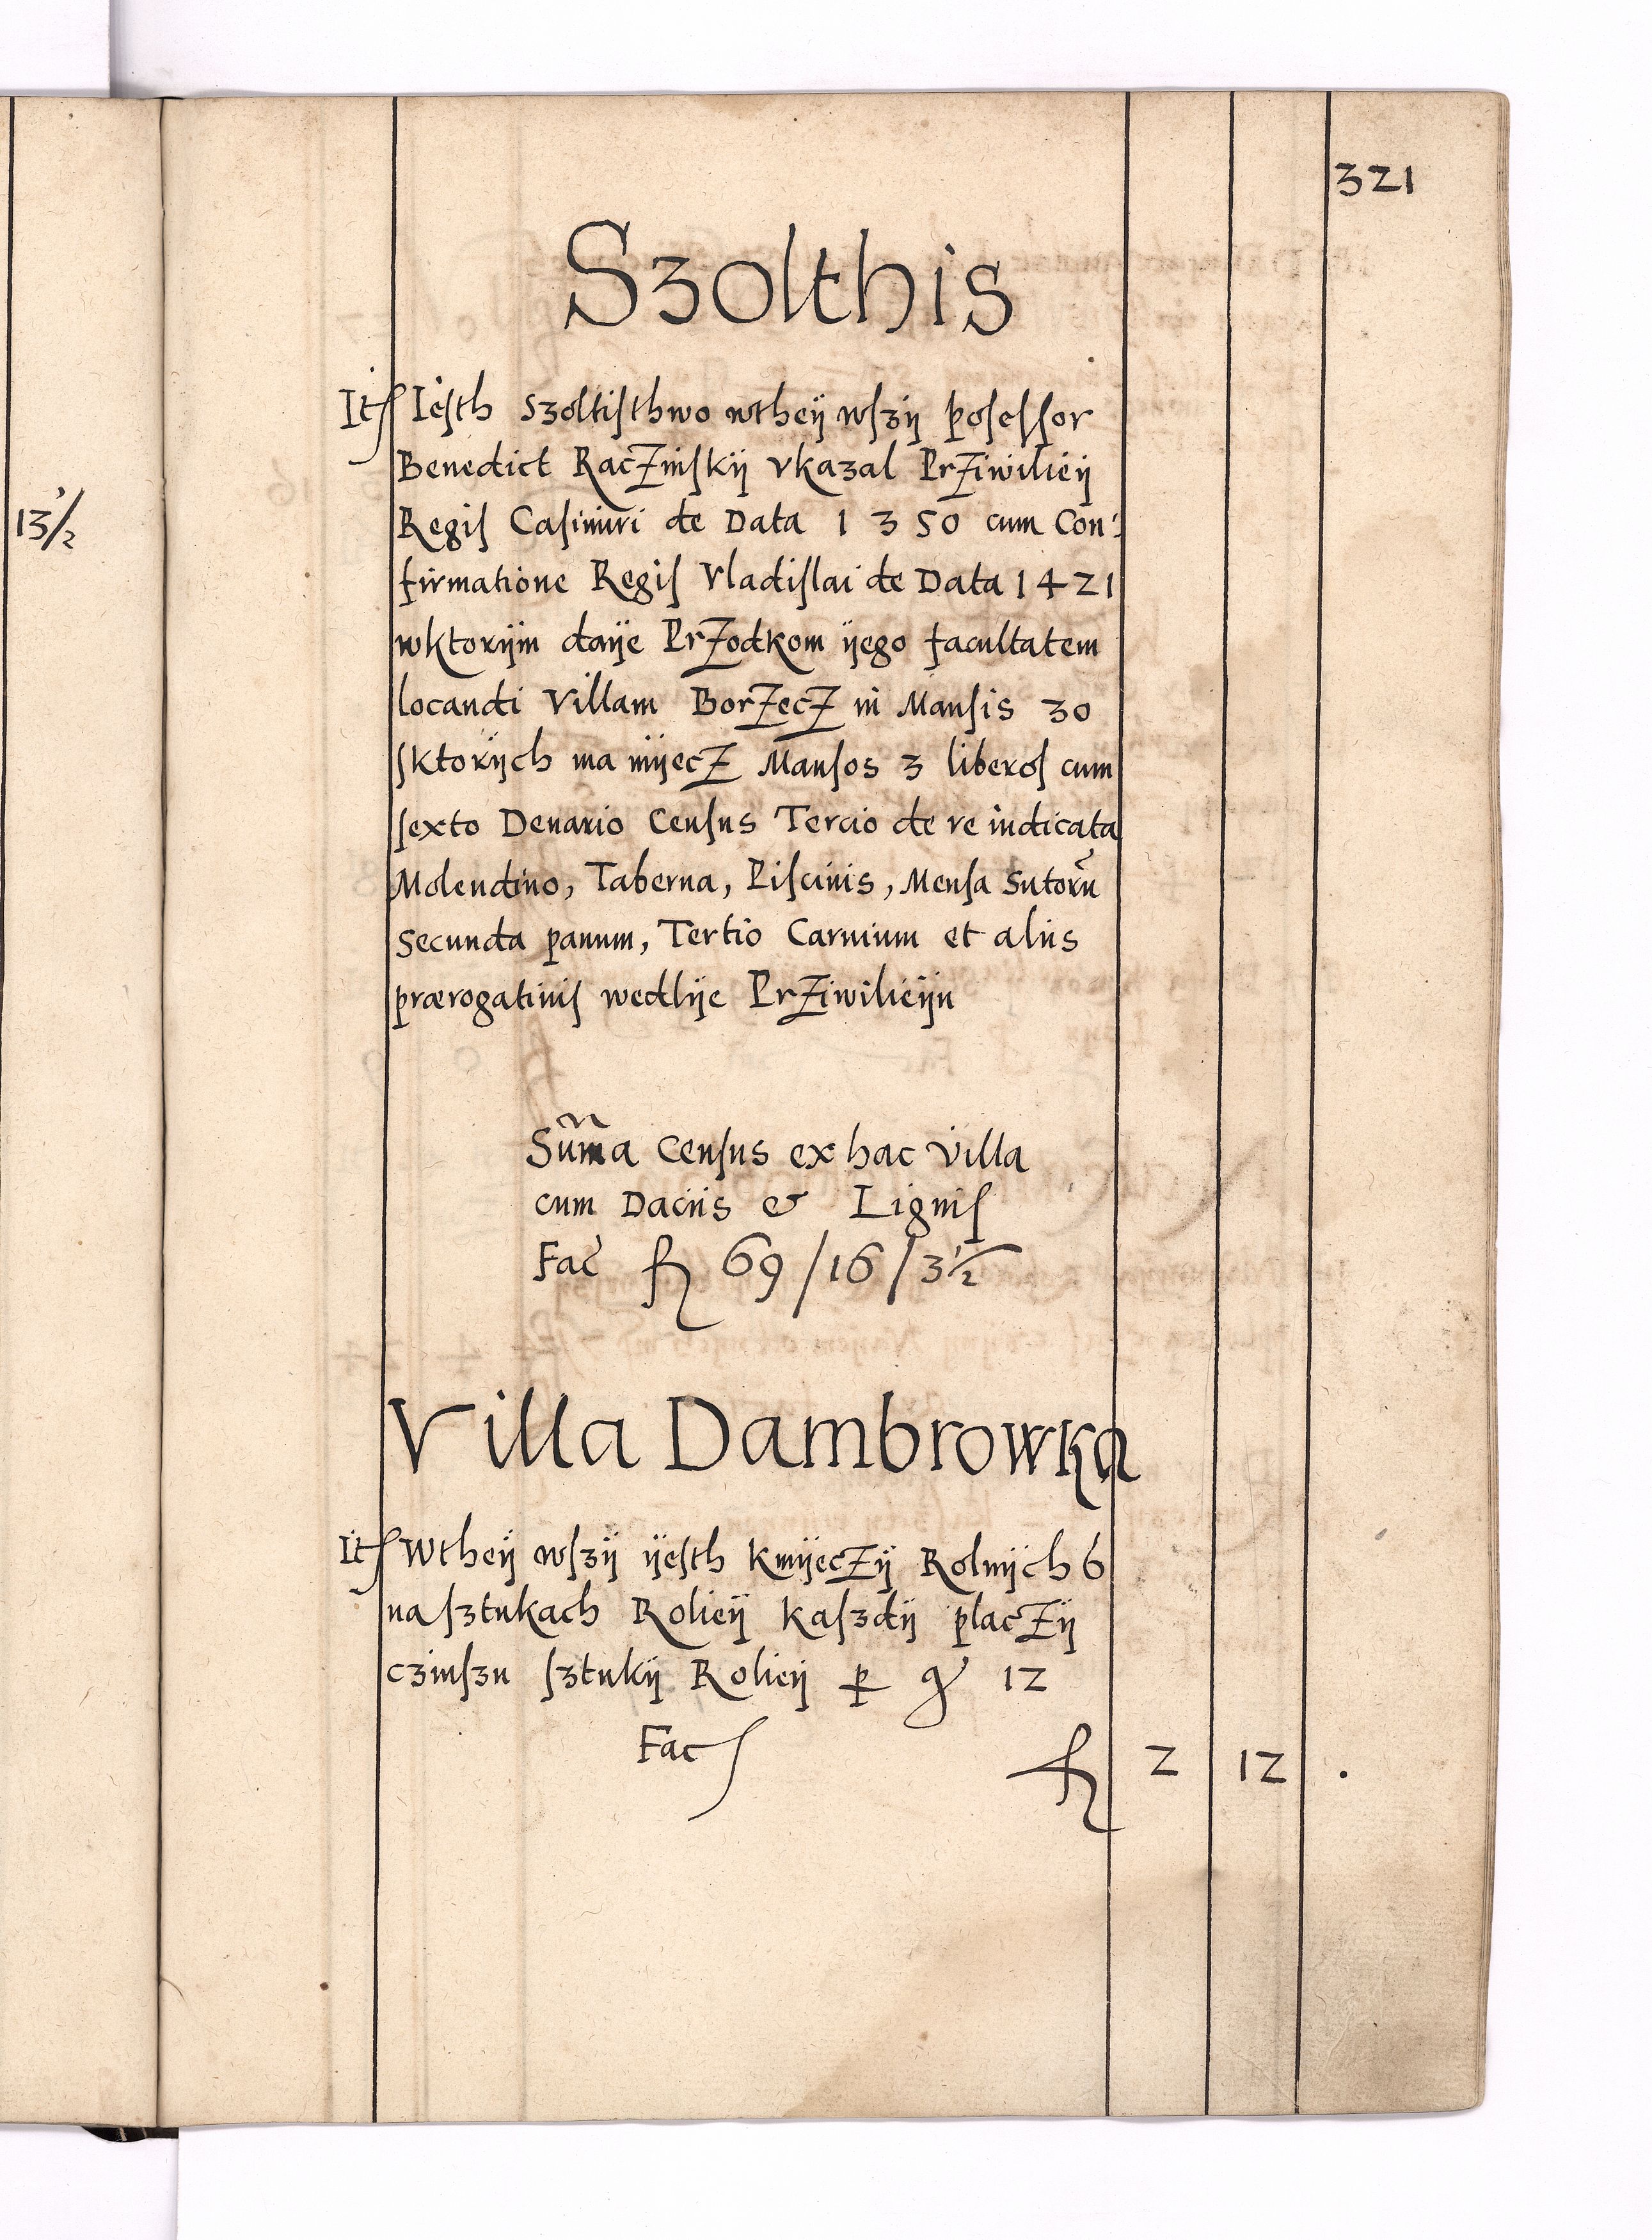 13½
321
Szolthis
It Iesth szoltisthwo wtheij wszij posessor
Benedict Raczinskij vkazal Prziwilieij
Regis Casimiri de Data 1350 cum Con:
firmatione Regis Vladislai de Data 1421
wktorijm daije Przodkom ijego facultatem
locandi Villam Borzecz in Mansis 30
sktorijch ma mijecz Mansos 3 liberos cum
sexto Denario Census Tercio de re iudicata
Molendino, Taberna, Piscinis, Mensa Sutorũ
Secunda panum, Tertio Carnium et aliis
prærogatiuis wedlije Prziwilieiju
Sum̃a Census ex hac villa
cum Daciis & Lignis
Fac fl 69/16/3½
Villa Dambrowka
It Wtheij wszij ijesth kmijeczij Rolnijch 6
na sztukach Rolieij kaszdij placzij
czinszu sztukij Rolieij p gr 12
Fac fl 2 12 .